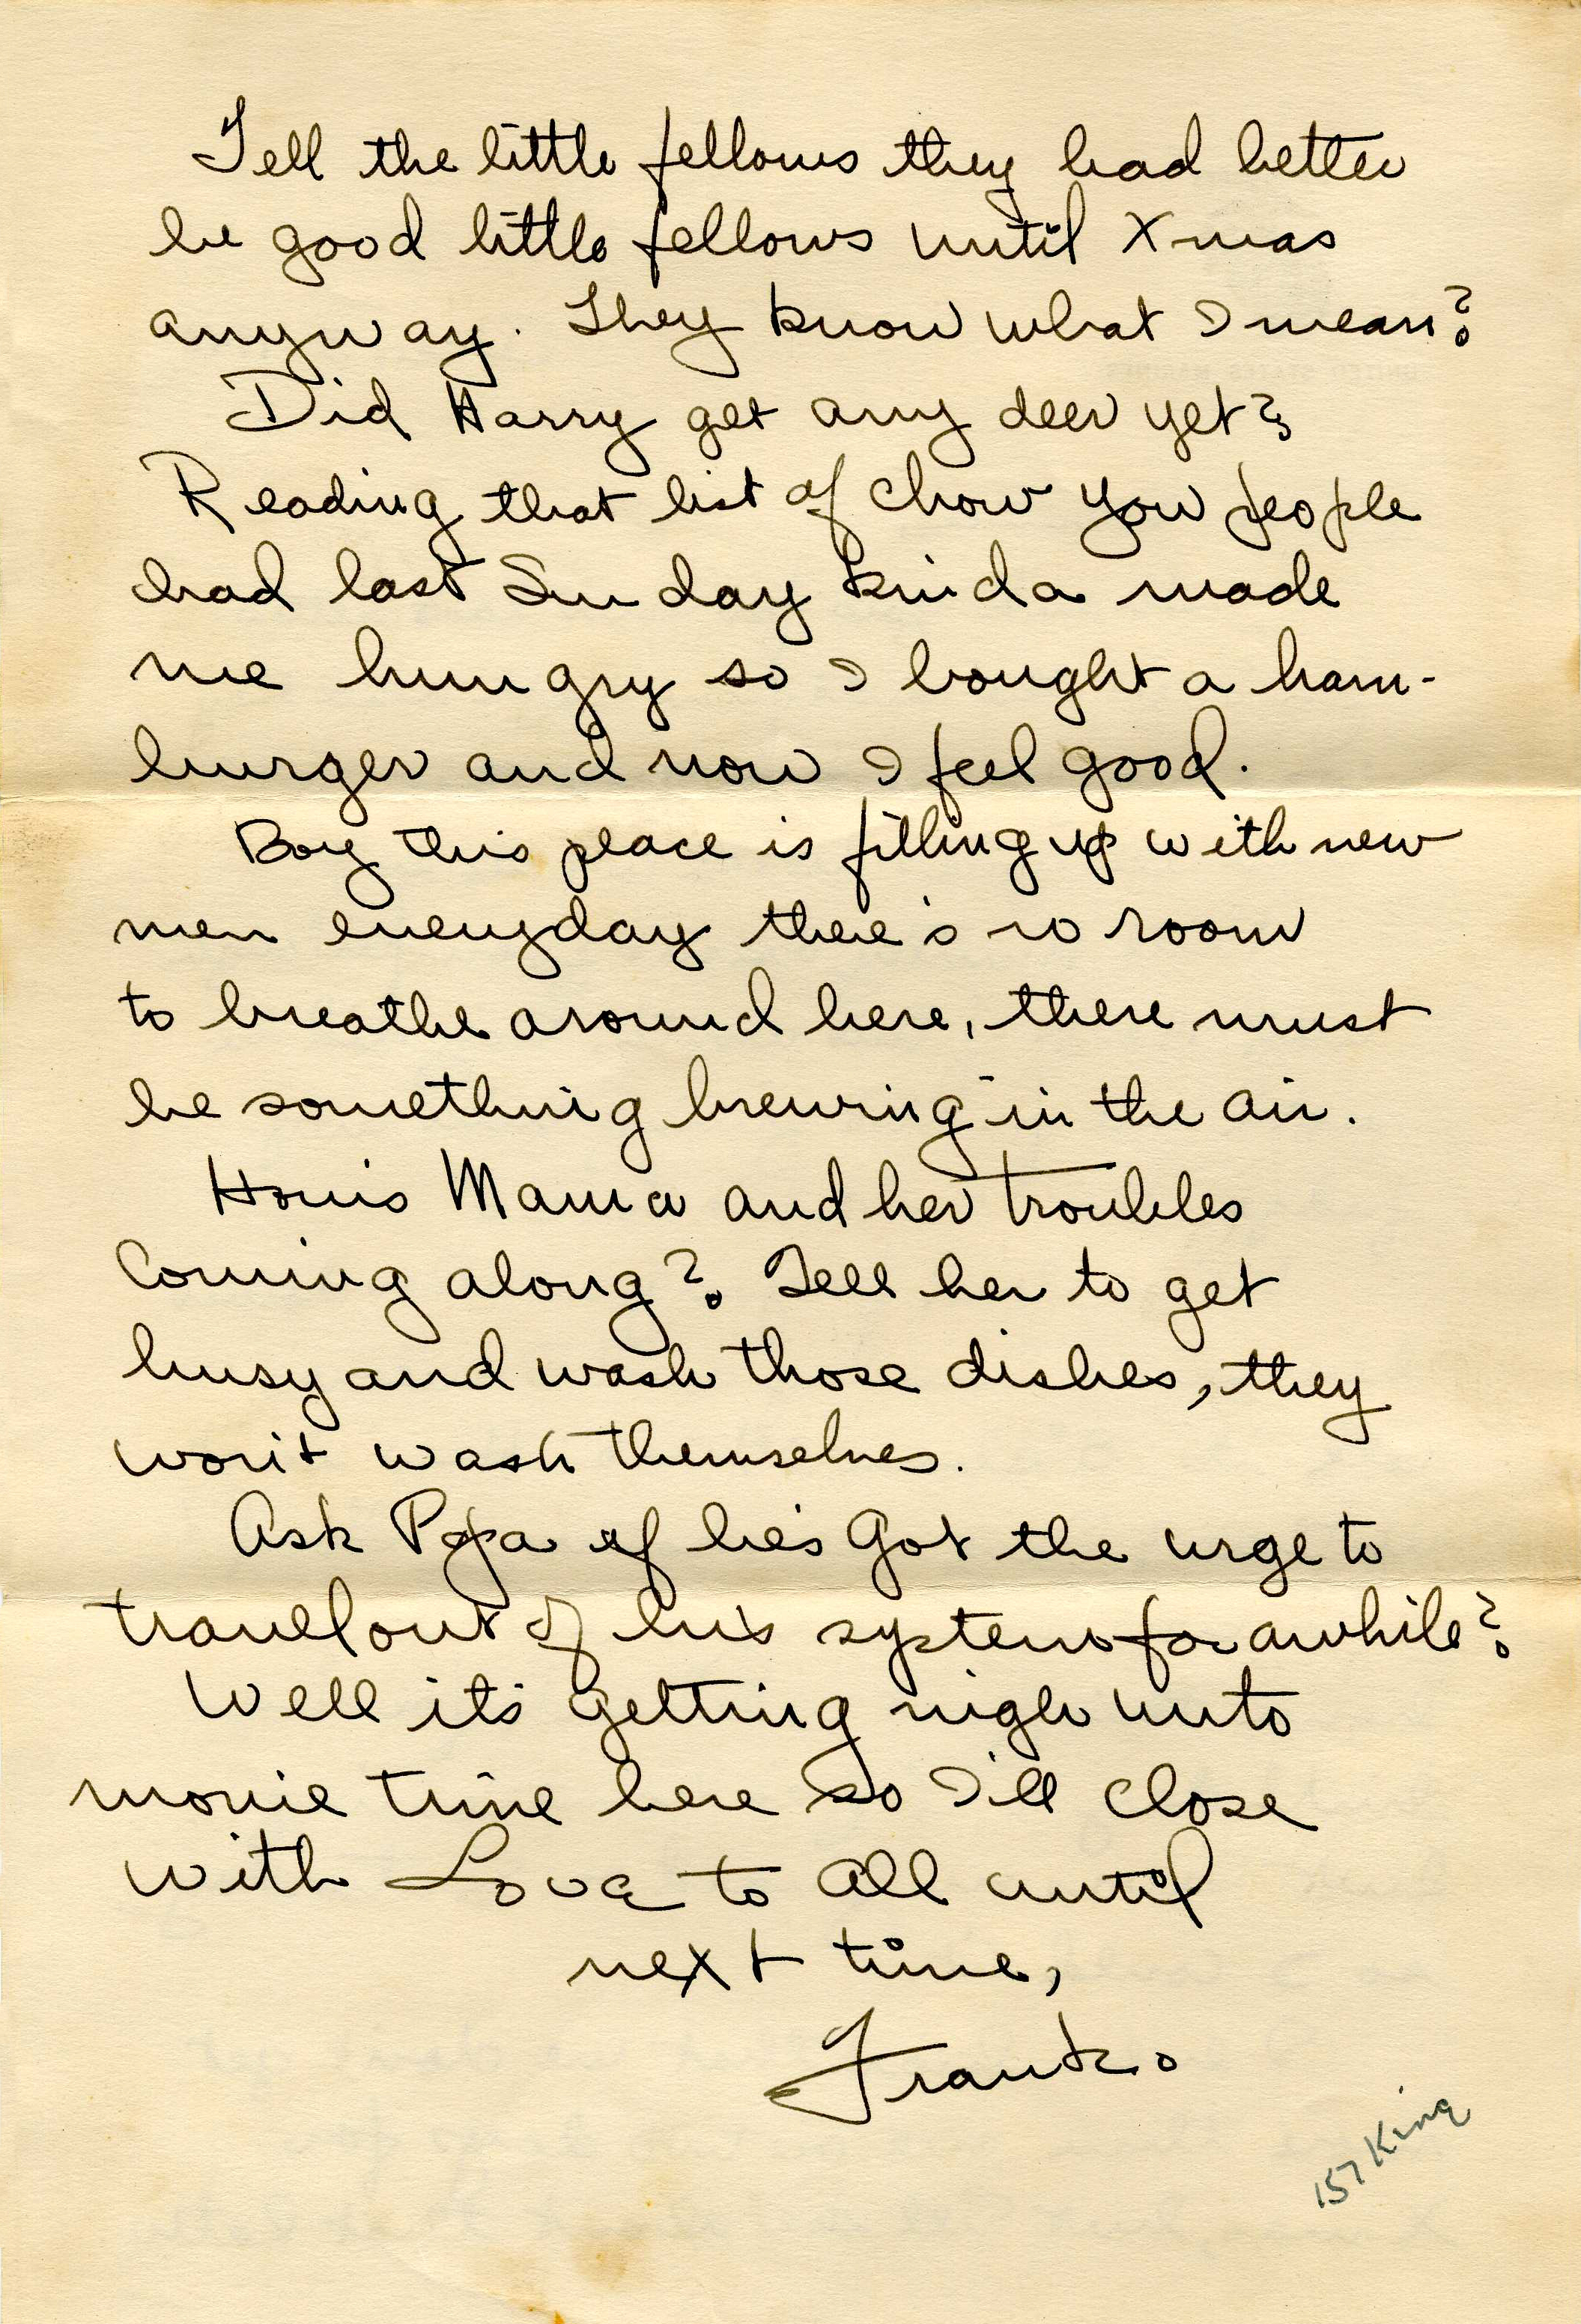 Tell the little fellows they had better
be good little fellows until Xmas
anyway. They know what I mean?
Did Harry get any deer yet?
Reading that list of chow you people
had last Sunday kinda made
me hungry so I bought a ham-
burger and now I feel good.
Boy this place is filling up with new
men everyday there's no room
to breathe around here, there must
be something brewing in the air.
How's Mama and her troubles
Coming along? Tell her to get
busy and wash those dishes, they
won't wash themselves.
Ask Papa if he's Got the urge to
travel out of his system for awhile?
Well it's getting nigh unto
movie time here so I'll close
with Love to all until
next time,
Frank.
157 King